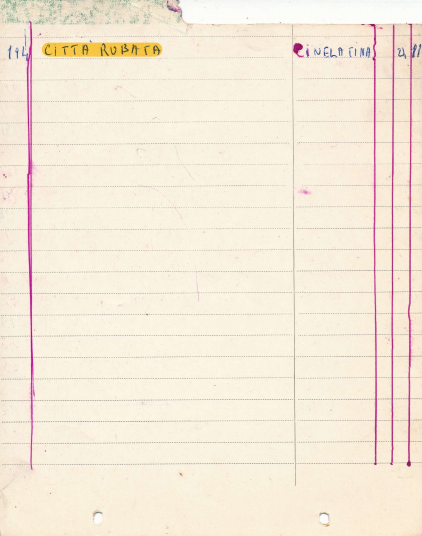 194 CITTÀ RUBATA CINELATINA 2, 11